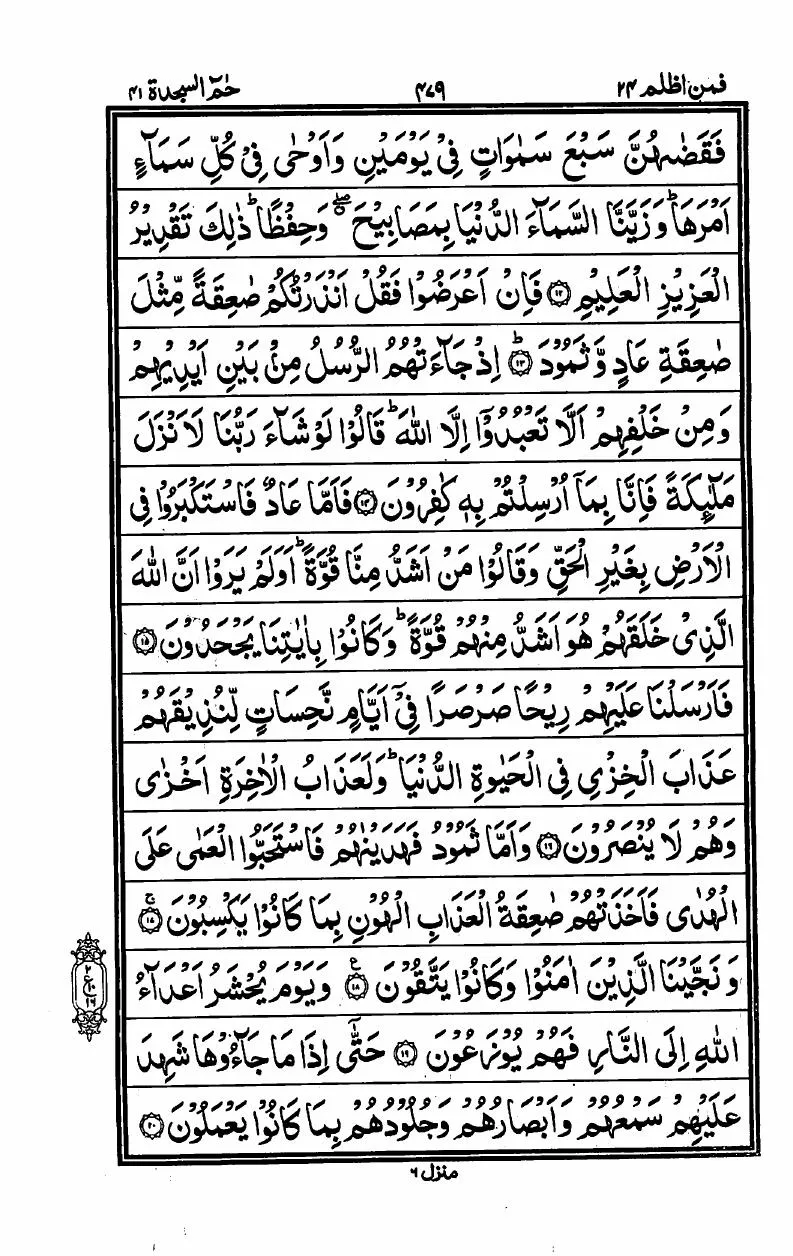 فمن اظلم ۲۴
۴۷۹
حٰمٓ السجدة ۴۱
فَقَضٰىهُنَّ سَبْعَ سَمٰوَاتٍ فِیْ یَوْمَیْنِ وَاَوْحٰی فِیْ كُلِّ سَمَآءٍ
اَمْرَهَا ؕ وَزَیَّنَّا السَّمَآءَ الدُّنْیَا بِمَصَابِیْحَ ۖۗ وَحِفْظًا ؕ ذٰلِكَ تَقْدِیْرُ
الْعَزِیْزِ الْعَلِیْمِ ۝۱۲ فَاِنْ اَعْرَضُوْا فَقُلْ اَنْذَرْتُكُمْ صٰعِقَةً مِّثْلَ
صٰعِقَةِ عَادٍ وَّثَمُوْدَ ؕ۝۱۳ اِذْ جَآءَتْهُمُ الرُّسُلُ مِنْۢ بَیْنِ اَیْدِیْهِمْ
وَمِنْ خَلْفِهِمْ اَلَّا تَعْبُدُوْۤا اِلَّا اللّٰهَ ؕ قَالُوْا لَوْ شَآءَ رَبُّنَا لَاَنْزَلَ
مَلٰٓىِٕكَةً فَاِنَّا بِمَاۤ اُرْسِلْتُمْ بِهٖ كٰفِرُوْنَ ۝۱۴ فَاَمَّا عَادٌ فَاسْتَكْبَرُوْا فِی
الْاَرْضِ بِغَیْرِ الْحَقِّ وَقَالُوْا مَنْ اَشَدُّ مِنَّا قُوَّةً ؕ اَوَلَمْ یَرَوْا اَنَّ اللّٰهَ
الَّذِیْ خَلَقَهُمْ هُوَ اَشَدُّ مِنْهُمْ قُوَّةً ؕ وَكَانُوْا بِاٰیٰتِنَا یَجْحَدُوْنَ ۝۱۵
فَاَرْسَلْنَا عَلَیْهِمْ رِیْحًا صَرْصَرًا فِیْۤ اَیَّامٍ نَّحِسَاتٍ لِّنُذِیْقَهُمْ
عَذَابَ الْخِزْیِ فِی الْحَیٰوةِ الدُّنْیَا ؕ وَلَعَذَابُ الْاٰخِرَةِ اَخْزٰی
وَهُمْ لَا یُنْصَرُوْنَ ۝۱۶ وَاَمَّا ثَمُوْدُ فَهَدَیْنٰهُمْ فَاسْتَحَبُّوا الْعَمٰی عَلَی
الْهُدٰی فَاَخَذَتْهُمْ صٰعِقَةُ الْعَذَابِ الْهُوْنِ بِمَا كَانُوْا یَكْسِبُوْنَ ۚ۝۱۷
وَنَجَّیْنَا الَّذِیْنَ اٰمَنُوْا وَكَانُوْا یَتَّقُوْنَ ع۝۱۸ وَیَوْمَ یُحْشَرُ اَعْدَآءُ
اللّٰهِ اِلَی النَّارِ فَهُمْ یُوْزَعُوْنَ ۝۱۹ حَتّٰۤی اِذَا مَا جَآءُوْهَا شَهِدَ
عَلَیْهِمْ سَمْعُهُمْ وَاَبْصَارُهُمْ وَجُلُوْدُهُمْ بِمَا كَانُوْا یَعْمَلُوْنَ ۝۲۰
منزل ۶